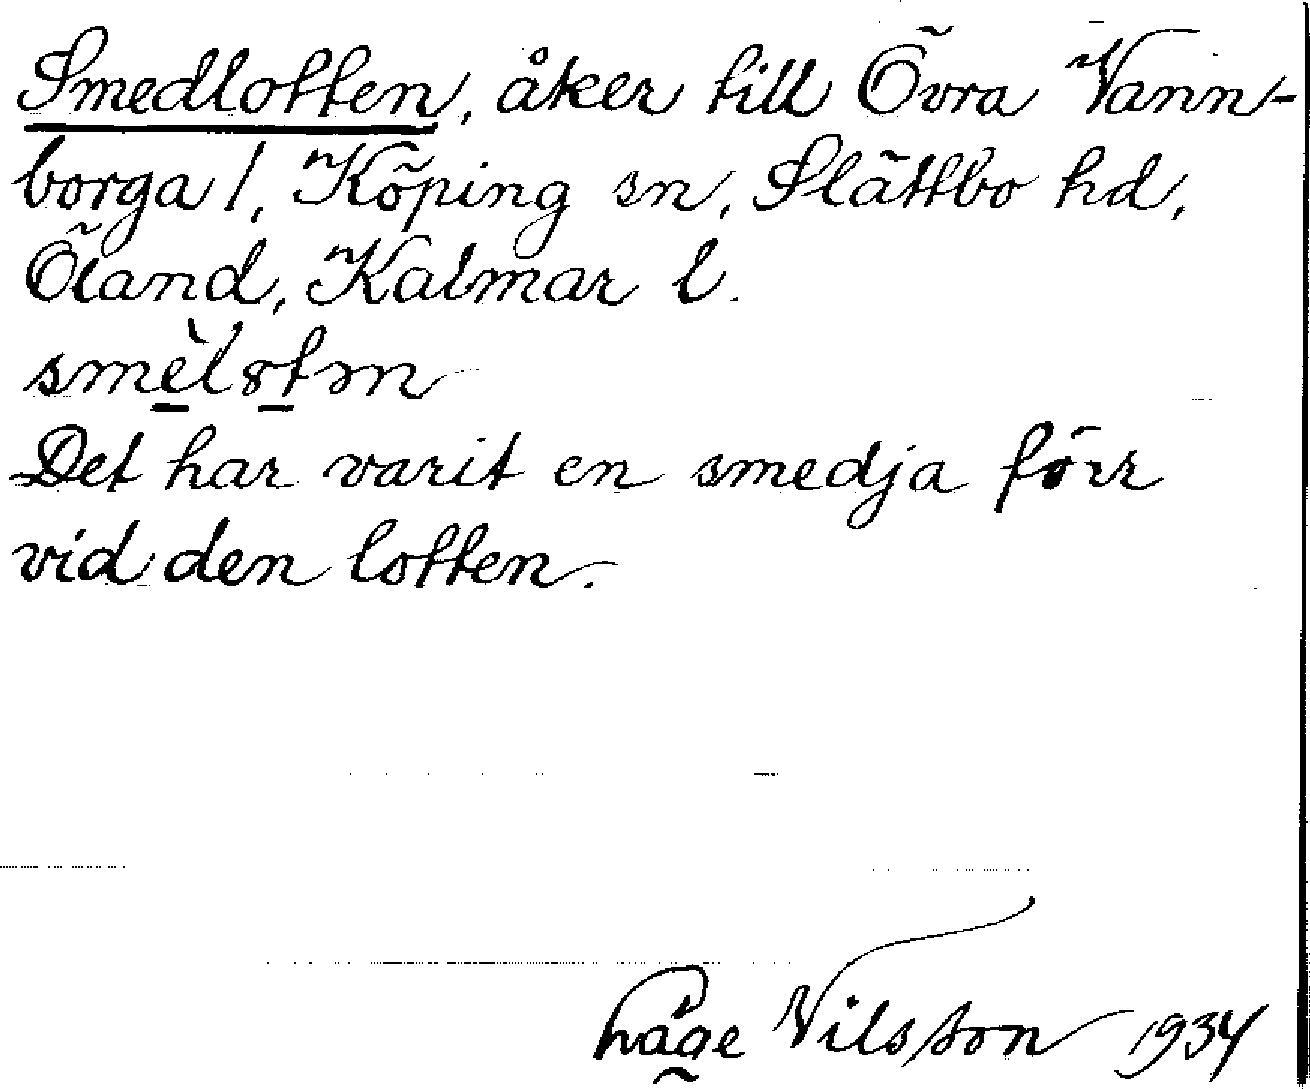 Smedlotten, åker till Övra Vann-
borga 1, Köping sn, Slättbo hd,
Öland, Kalmar l.
Det har varit en smedja förr
vid den lotten.
Nilsson 1934